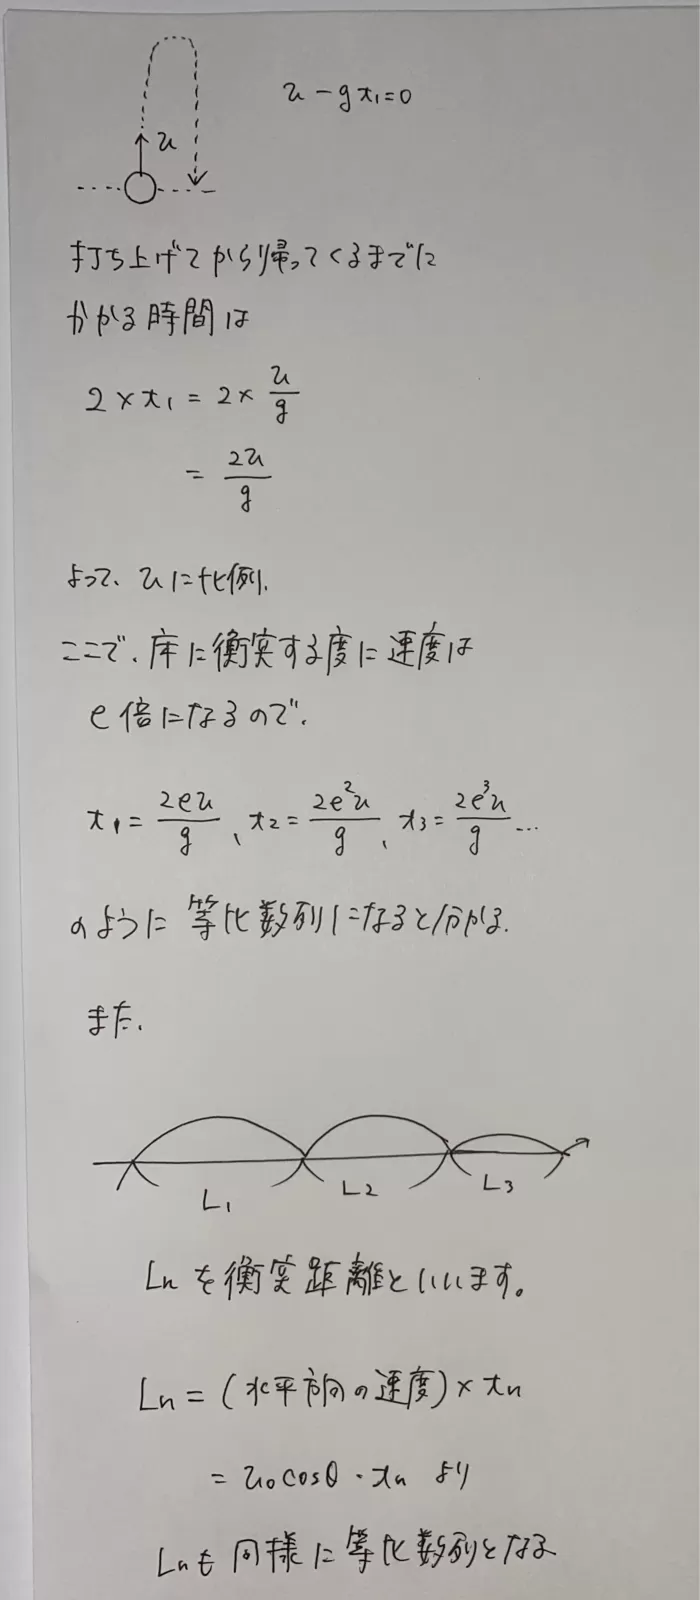 u - gt₁=0
u
打ち上げてから帰ってくるまでに
かかる時間は
2×t₁ = 2× u/g
= 2u/g
よって、uに比例.
ここで、床に衝突する度に速度は
e倍になるので、
t₁= 2eu/g 、t₂= 2e²u/g 、t₃= 2e³u/g …
のように等比数列になると分かる.
また、
L₁ L₂ L₃
Lnを衝突距離といいます。
Ln = (水平方向の速度)×tn
= u₀cosθ・tn より
Lnも同様に等比数列となる